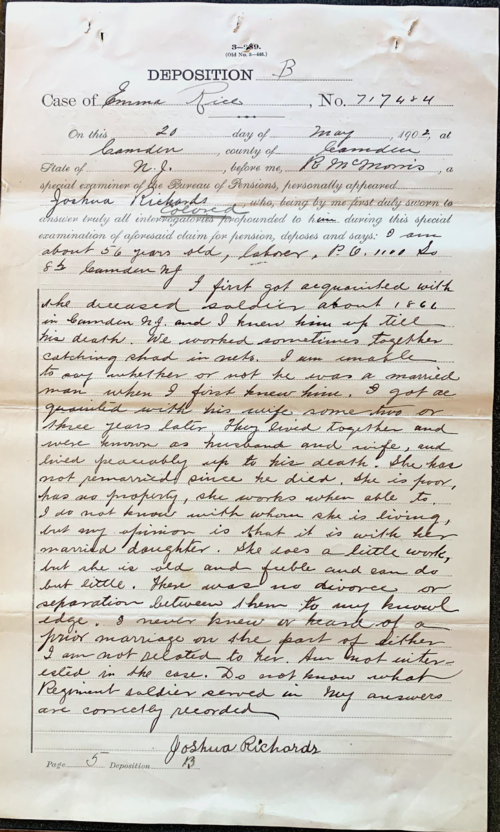 3—289.
(Old No. 3—446.)
DEPOSITION B
Case of Emma Rice, No. 717484
On this 20 day of May, 1902, at
Camden, county of Camden
State of N.J., before me, R McMorris, a
special examiner of the Bureau of Pensions, personally appeared
Joshua Richards, who, being by me first duly sworn to
colored
answer truly all interrogatories propounded to him during this special
examination of aforesaid claim for pension, deposes and says: I am
about 56 years old, laborer, P.O. 1100 So
8th Camden NJ
I first got acquainted with
the deceased soldier about 1866
in Camden N.J. and I knew him up till
his death. We worked sometimes together
catching shad in nets. I am unable
to say whether or not he was a married
man when I first knew him. I got ac
quainted with his wife some two or
three years later They lived together and
were known as husband and wife, and
lived peaceably up to his death. She has
not remarried since he died. She is poor,
has no property, she works when able to.
I do not know with whom she is living,
but my opinion is that it is with her
married daughter. She does a little work,
but she is old and feeble and can do
but little. There was no divorce or
separation between them to my knowl
edge. I never knew or heard of a
prior marriage on the part of either
I am not related to her. Am not inter-
ested in the case. Do not know what
Regiment soldier served in My answers
are correctly recorded
Joshua Richards
Page 5 Deposition B